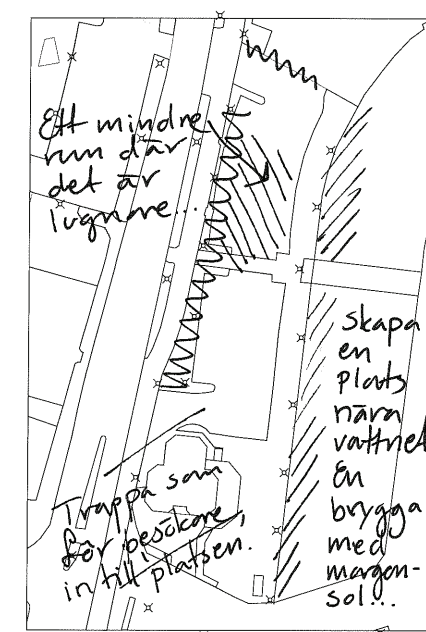 Ett mindre
rum där
det är
lugnare...
Skapa
en
plats
nära
vattnet
En
brygga
med
morgon-
sol...
Trappa som
får besökare
in till platsen.